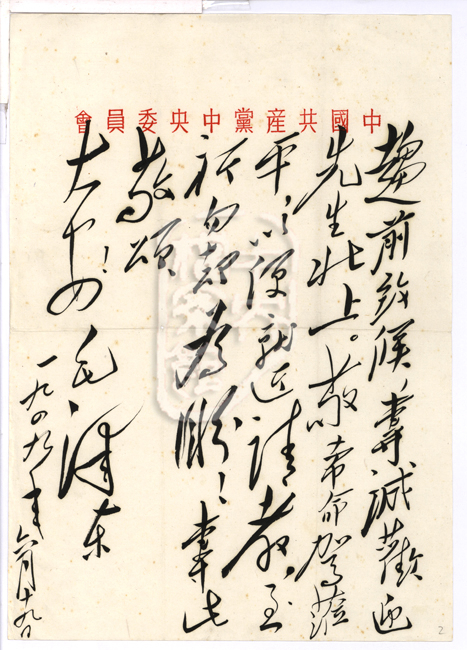 中國共產黨中央委員會
趨前致候，專誠歡迎
先生北上。敬希命駕蒞
平，以便就近請教，至
祈勿却為盼！專此
敬頌
大安！
毛澤东
一九四九年六月十九日
2